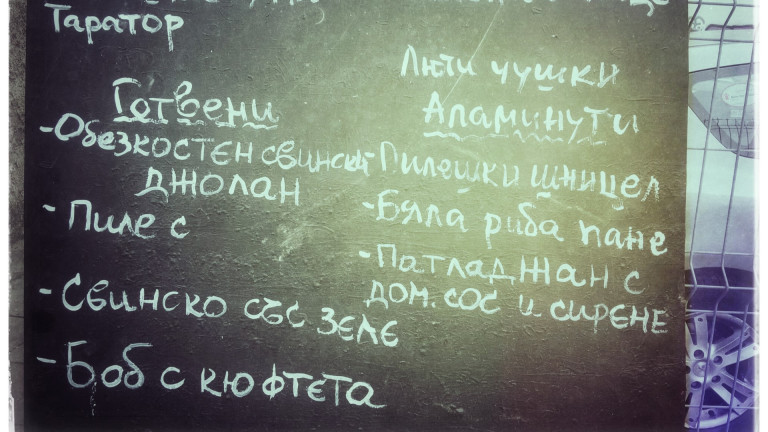 Таратор
Люти чушки
Готвени
- Обезкостен свински
джолан
- Пиле с
- Свинско със зеле
- Боб с кюфтета
Аламинути
- Пилешки шницел
- Бяла риба пане
- Патладжан с
дом. сос и сирене